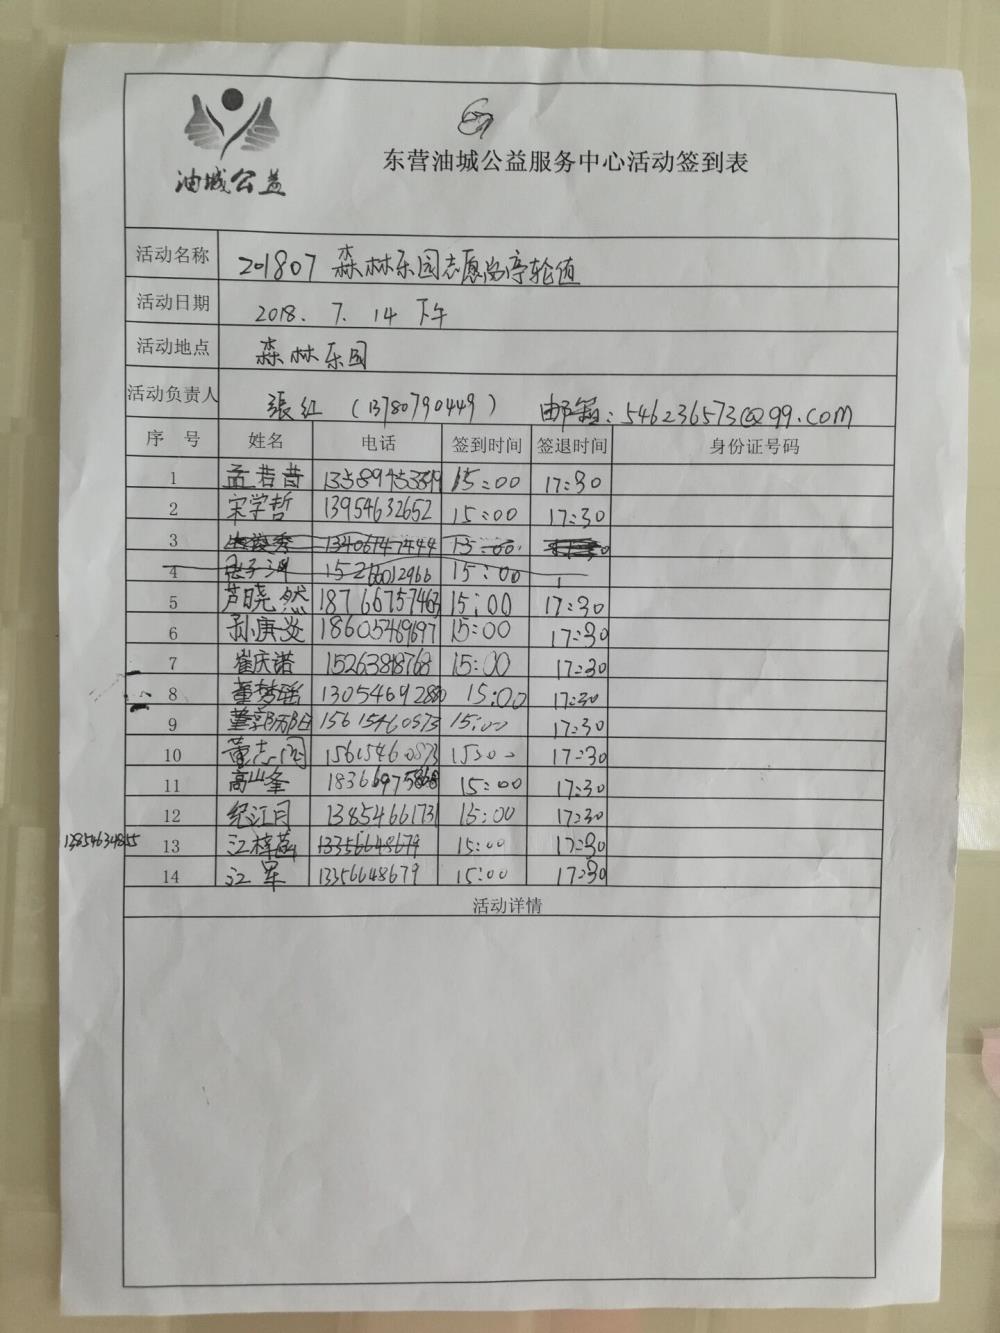 油城公益
东营油城公益服务中心活动签到表
活动名称 201807 森林乐园志愿岗亭轮值
活动日期 2018. 7. 14 下午
活动地点 森林乐园
活动负责人 張红 (13780790449) 邮箱:546236573@qq.com
序 号 姓名 电话 签到时间 签退时间 身份证号码
1 孟若昔 15:00 17:30
2 宋学哲 13954632652 15:00 17:30
3 15:00
4 15:00
5 芦晓然 18766757463 15:00 17:30
6 孙庚炎 18605469697 15:00 17:30
7 崔庆诺 15263818768 15:00 17:30
8 董梦瑶 13054692880 15:00 17:30
9 15615460573 15:00 17:30
10 董志阔 15615460573 15:00 17:30
11 高山峰 18366975868 15:00 17:30
12 纪江月 13854661731 15:00 17:30
13854634855 13 江梓菡 13356648679 15:00 17:30
14 江军 13356648679 15:00 17:30
活动详情